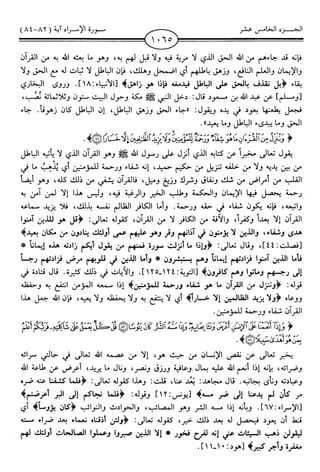 الجـــزء الخامس عشر
سـورة الإسـراء آية (٨٢-٨٤)
١٠٦٥
فإنه قد جاءهم من الله الحق الذي لا مرية فيه ولا قبل لهم به، وهو ما بعثه الله به من القرآن
والإيمان والعلم النافع، وزهق باطلهم أي اضمحل وهلك، فإن الباطل لا ثبات له مع الحق ولا
بقاء ﴿بل نقذف بالحق على الباطل فيدمغه فإذا هو زاهق﴾ [الأنبياء: ١٨]. وروى البخاري
[ومسلم] عن عبد الله بن مسعود قال: دخل النبي ﷺ مكة وحول البيت ستون وثلاثمائة نُصُب،
فجعل يطعنها بعود في يده ويقول: «جاء الحق وزهق الباطل، إن الباطل كان زهوقاً. جاء
الحق وما يبديء الباطل وما يعيد».
﴿ وَنُنَزِّلُ مِنَ الْقُرْآنِ مَا هُوَ شِفَاءٌ وَرَحْمَةٌ لِلْمُؤْمِنِينَ وَلَا يَزِيدُ الظَّالِمِينَ إِلَّا خَسَارًا ﴾.
يقول تعالى مخبراً عن كتابه الذي أنزل على رسول الله ﷺ وهو القرآن الذي لا يأتيه الباطل
من بين يديه ولا من خلفه تنزيل من حكيم حميد، إنه شفاء ورحمة للمؤمنين أي يُذْهِبُ ما في
القلب من أمراض من شك ونفاق وشرك وزيغ وميل، فالقرآن يشفي من ذلك كله، وهو أيضاً
رحمة يحصل فيها الإيمان والحكمة وطلب الخير والرغبة فيه، وليس هذا إلا لمن آمن به
واتبعه، فإنه يكون شفاء في حقه ورحمة. وأما الكافر الظالم نفسه بذلك، فلا يزيد سماعه
القرآن إلا بعداً وكفراً، والآفة من الكافر لا من القرآن، كقوله تعالى: ﴿قل هو للذين آمنوا
هدى وشفاء، والذين لا يؤمنون في آذانهم وقر وهو عليهم عمى أولئك ينادون من مكان بعيد﴾
[فصلت: ٤٤]، وقال تعالى: ﴿وإذا ما أنزلت سورة فمنهم من يقول أيكم زادته هذه إيماناً *
فأما الذين آمنوا فزادتهم إيماناً وهم يستبشرون * وأما الذين في قلوبهم مرض فزادتهم رجساً
إلى رجسهم وماتوا وهم كافرون﴾ [التوبة: ١٢٤-١٢٥]. والآيات في ذلك كثيرة. قال قتادة في
قوله: ﴿وننزل من القرآن ما هو شفاء ورحمة للمؤمنين﴾ إذا سمعه المؤمن انتفع به وحفظه
ووعاه ﴿ولا يزيد الظالمين إلا خساراً﴾ أي لا ينتفع به ولا يحفظه ولا يعيه، فإن الله جعل هذا
القرآن شفاء ورحمة للمؤمنين.
﴿ وَإِذَا أَنْعَمْنَا عَلَى الْإِنْسَانِ أَعْرَضَ وَنَأَى بِجَانِبِهِ وَإِذَا مَسَّهُ الشَّرُّ كَانَ يَئُوسًا ﴿٨٣﴾ قُلْ كُلٌّ يَعْمَلُ عَلَى شَاكِلَتِهِ فَرَبُّكُمْ أَعْلَمُ
بِمَنْ هُوَ أَهْدَى سَبِيلًا ﴾.
يخبر تعالى عن نقص الإنسان من حيث هو، إلا من عصمه الله تعالى في حالتي سرائه
وضرائه، بإنه إذا أنعم الله عليه بمال وعافية ورزق ونصر، ونال ما يريد، أعرض عن طاعة الله
وعبادته ونأى بجانبه. قال مجاهد: بَعُد عنا، قلت: وهذا كقوله تعالى: ﴿فلما كشفنا عنه ضره
مر كأن لم يدعنا إلى ضر مسه﴾ [يونس: ١٢] وقوله: ﴿فلما نجاكم إلى البر أعرضتم﴾
[الإسراء: ٦٧]. وبأنه إذا مسه الشر وهو المصائب، والحوادث والنوائب ﴿كان يؤوساً﴾ أي
قنط أن يعود فيحصل له بعد ذلك خير، كقوله تعالى: ﴿ولئن أذقناه نعماء بعد ضراء مسته
ليقولن ذهب السيئات عني إنه لفرح فخور * إلا الذين صبروا وعملوا الصالحات أولئك لهم
مغفرة وأجر كبير﴾ [هود: ١٠-١١].